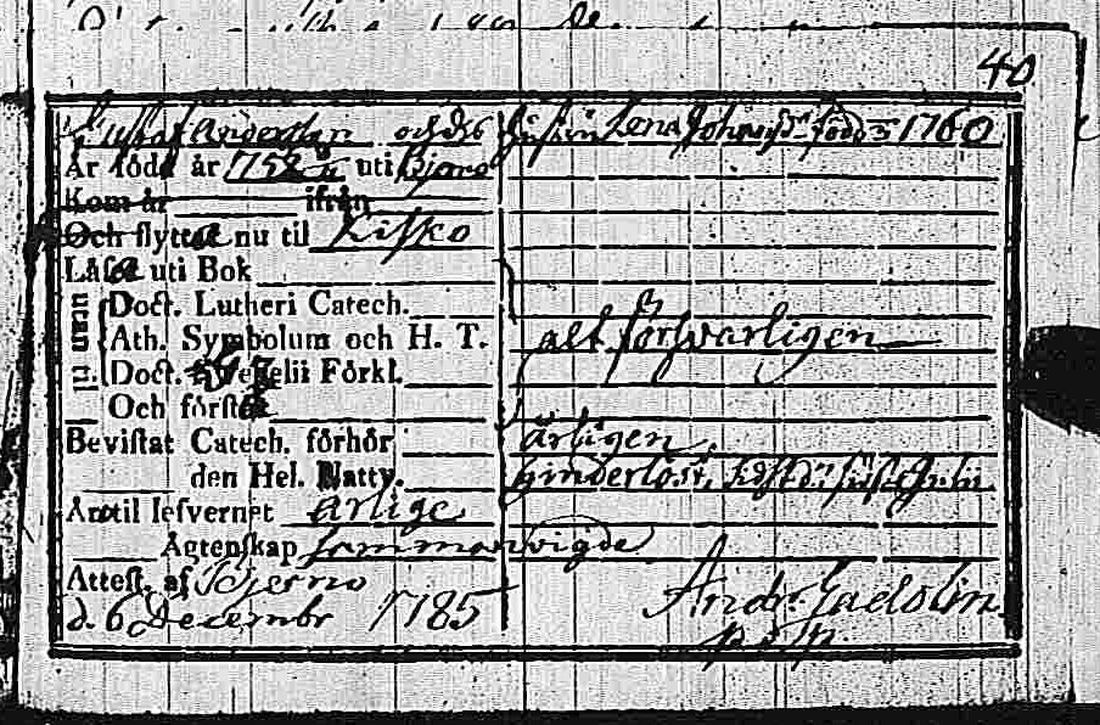 40
Gustaf Andersson och dess hustru Lena Johansdr född 1760
Är född år 1752 uti Bjerno
Kom år ifrån
Och flytta nu til Kisko
Läsa uti Bok
utan Doct. Lutheri Catech.
Ath. Symbolum och H. T. alt försvarligen
Doct. Förkl.
Och förstå
Bevistat Catech. förhör årligen
den Hel. Nattv. hinderlöst,
Äro til lefvernet ärlige
Ägtenskap sammanvigde
Attest. af Bjerno
d. 6 Decembr 1785 Andr. Gadolin